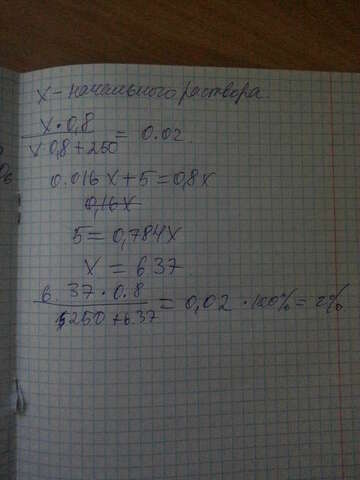 x - начального раствора
x · 0,8 / x 0,8 + 250 = 0.02
0.016x + 5 = 0,8x
0,16x
5 = 0,784x
x = 6.37
6.37 · 0.8 / 250 + 6.37 = 0,02 · 100% = 2%